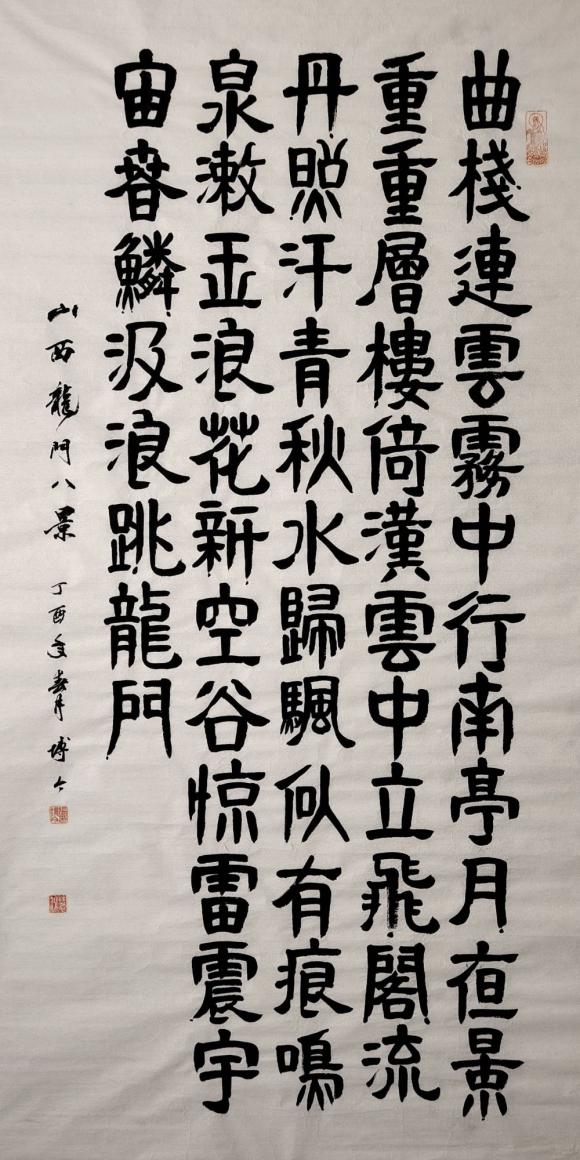 曲棧連雲霧中行南亭月夜景
重重層樓倚漢雲中立飛閣流
丹照汗青秋水歸颿似有痕鳴
泉漱玉浪花新空谷惊雷震宇
宙春鱗汲浪跳龍門
山西龍門八景 丁酉年春月博